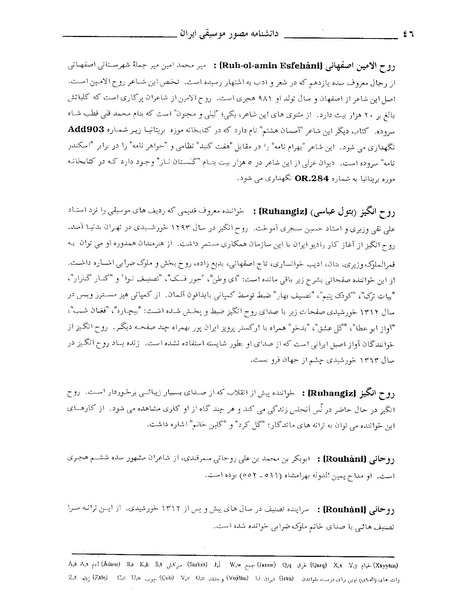 ۴۶ دانشنامه مصور موسیقی ایران
روح الامین اصفهانی [Ruh-ol-amin Esfehâni] : میر محمد امین میر جملهٔ شهرستانی اصفهانی
از رجال معروف سده یازدهم که در شعر و ادب به اشتهار رسیده است. تخلص این شاعر روح الامین است.
اصل این شاعر از اصفهان و سال تولد او ۹۸۱ هجری است. روح الامین از شاعران پرکاری است که کلیاتش
بالغ بر ۲۰ هزار بیت دارد. از مثنوی های این شاعر، یکی؛ "لیلی و مجنون" است که بنام محمد قلی قطب شاه
سروده. کتاب دیگر این شاعر "آسمان هشتم" نام دارد که در کتابخانه موزه بریتانیا زیر شماره Add903
نگهداری می شود. این شاعر "بهرام نامه" را در مقابل "هفت گنبد" نظامی و "جواهر نامه" را در برابر "اسکندر
نامه" سروده است. دیوان غزلی از این شاعر در ۵ هزار بیت بنام "گلستان ناز" وجود دارد که در کتابخانه
موزه بریتانیا به شماره OR.284 نگهداری می شود.
روح انگیز (بتول عباسی) [Ruhangiz] : خواننده معروف قدیمی که ردیف های موسیقی را نزد استاد
علی نقی وزیری و استاد حسین سنجری آموخت. روح انگیز در سال ۱۲۹۳ خورشیدی در تهران بدنیا آمد.
روح انگیز از آغاز کار رادیو ایران با این سازمان همکاری مستمر داشت. از هنرمندان همدوره او می توان به
قمرالملوک وزیری، بنان، ادیب خوانساری، تاج اصفهانی، بدیع زاده، روح بخش و ملوک ضرابی اشاره داشت.
از این خواننده صفحاتی بشرح زیر باقی مانده است: "ای وطن"، "جور فلک"، "تصنیف نوا" و "کنار گلزار"،
"بیات ترک"، "کودک یتیم"، "تصنیف بهار" ضبط توسط کمپانی بایدافون آلمان. از کمپانی هیز مسترز ویس در
سال ۱۳۱۲ خورشیدی صفحات زیر با صدای روح انگیز ضبط و پخش شده است: "بیچاره"، "فغان شب"،
"آواز ابو عطا"، "گل عشق"، "بدخو" همراه با ارکستر پرویز ایران پور بهمراه چند صفحه دیگر. روح انگیز از
خوانندگان آواز اصیل ایرانی است که از صدای او بطور شایسته استفاده نشده است. زنده یاد روح انگیز در
سال ۱۳۶۳ خورشیدی چشم از جهان فرو بست.
روح انگیز [Ruhangiz] : خواننده پیش از انقلاب که از صدای بسیار زیبائی برخوردار است. روح
انگیز در حال حاضر در لُس آنجلس زندگی می کند و هر چند گاه از او کاری مشاهده می شود. از کارهای
این خواننده می توان به ترانه های ماندگار؛ "گل کرد" و "گلین خانم" اشاره داشت.
روحانی [Rouhâni] : ابوبکر بن محمد بن علی روحانی سمرقندی، از شاعران مشهور سده ششم هجری
است. او مداح یمین الدوله بهرامشاه (۵۱۱-۵۵۲) بوده است.
روحانی [Rouhâni] : سراینده تصنیف در سال های پیش و پس از ۱۳۱۲ خورشیدی. از این ترانه سرا
تصنیف هائی با صدای خانم ملوک ضرابی خوانده شده است.